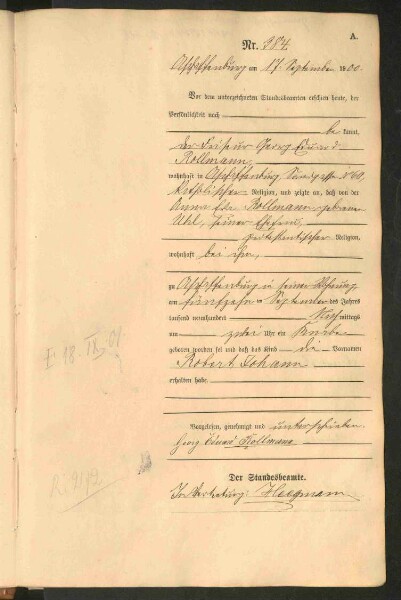 A.
Nr. 384.
Aschaffenburg am 17. September 1900.
Vor dem unterzeichneten Standesbeamten erschien heute, der
Persönlichkeit nach
be kannt,
der Friseur Georg Eduard
Rollmann,
wohnhaft in Aschaffenburg, Sandgasse No 60,
katholischer Religion, und zeigte an, daß von der
Anna Rollmann, geborene
Uhl, seiner Ehefrau,
protestantischer Religion,
wohnhaft bei ihm,
zu Aschaffenburg in seiner Wohnung
am fünfzehn September des Jahres
tausend neunhundert Nachmittags
um zwei Uhr ein Knabe
geboren worden sei und daß das Kind die Vornamen
Robert Johann
erhalten habe.
Vorgelesen, genehmigt und unterschrieben
Georg Eduard Rollmann
Der Standesbeamte.
In Vertretung:
† 18. IX. 01.